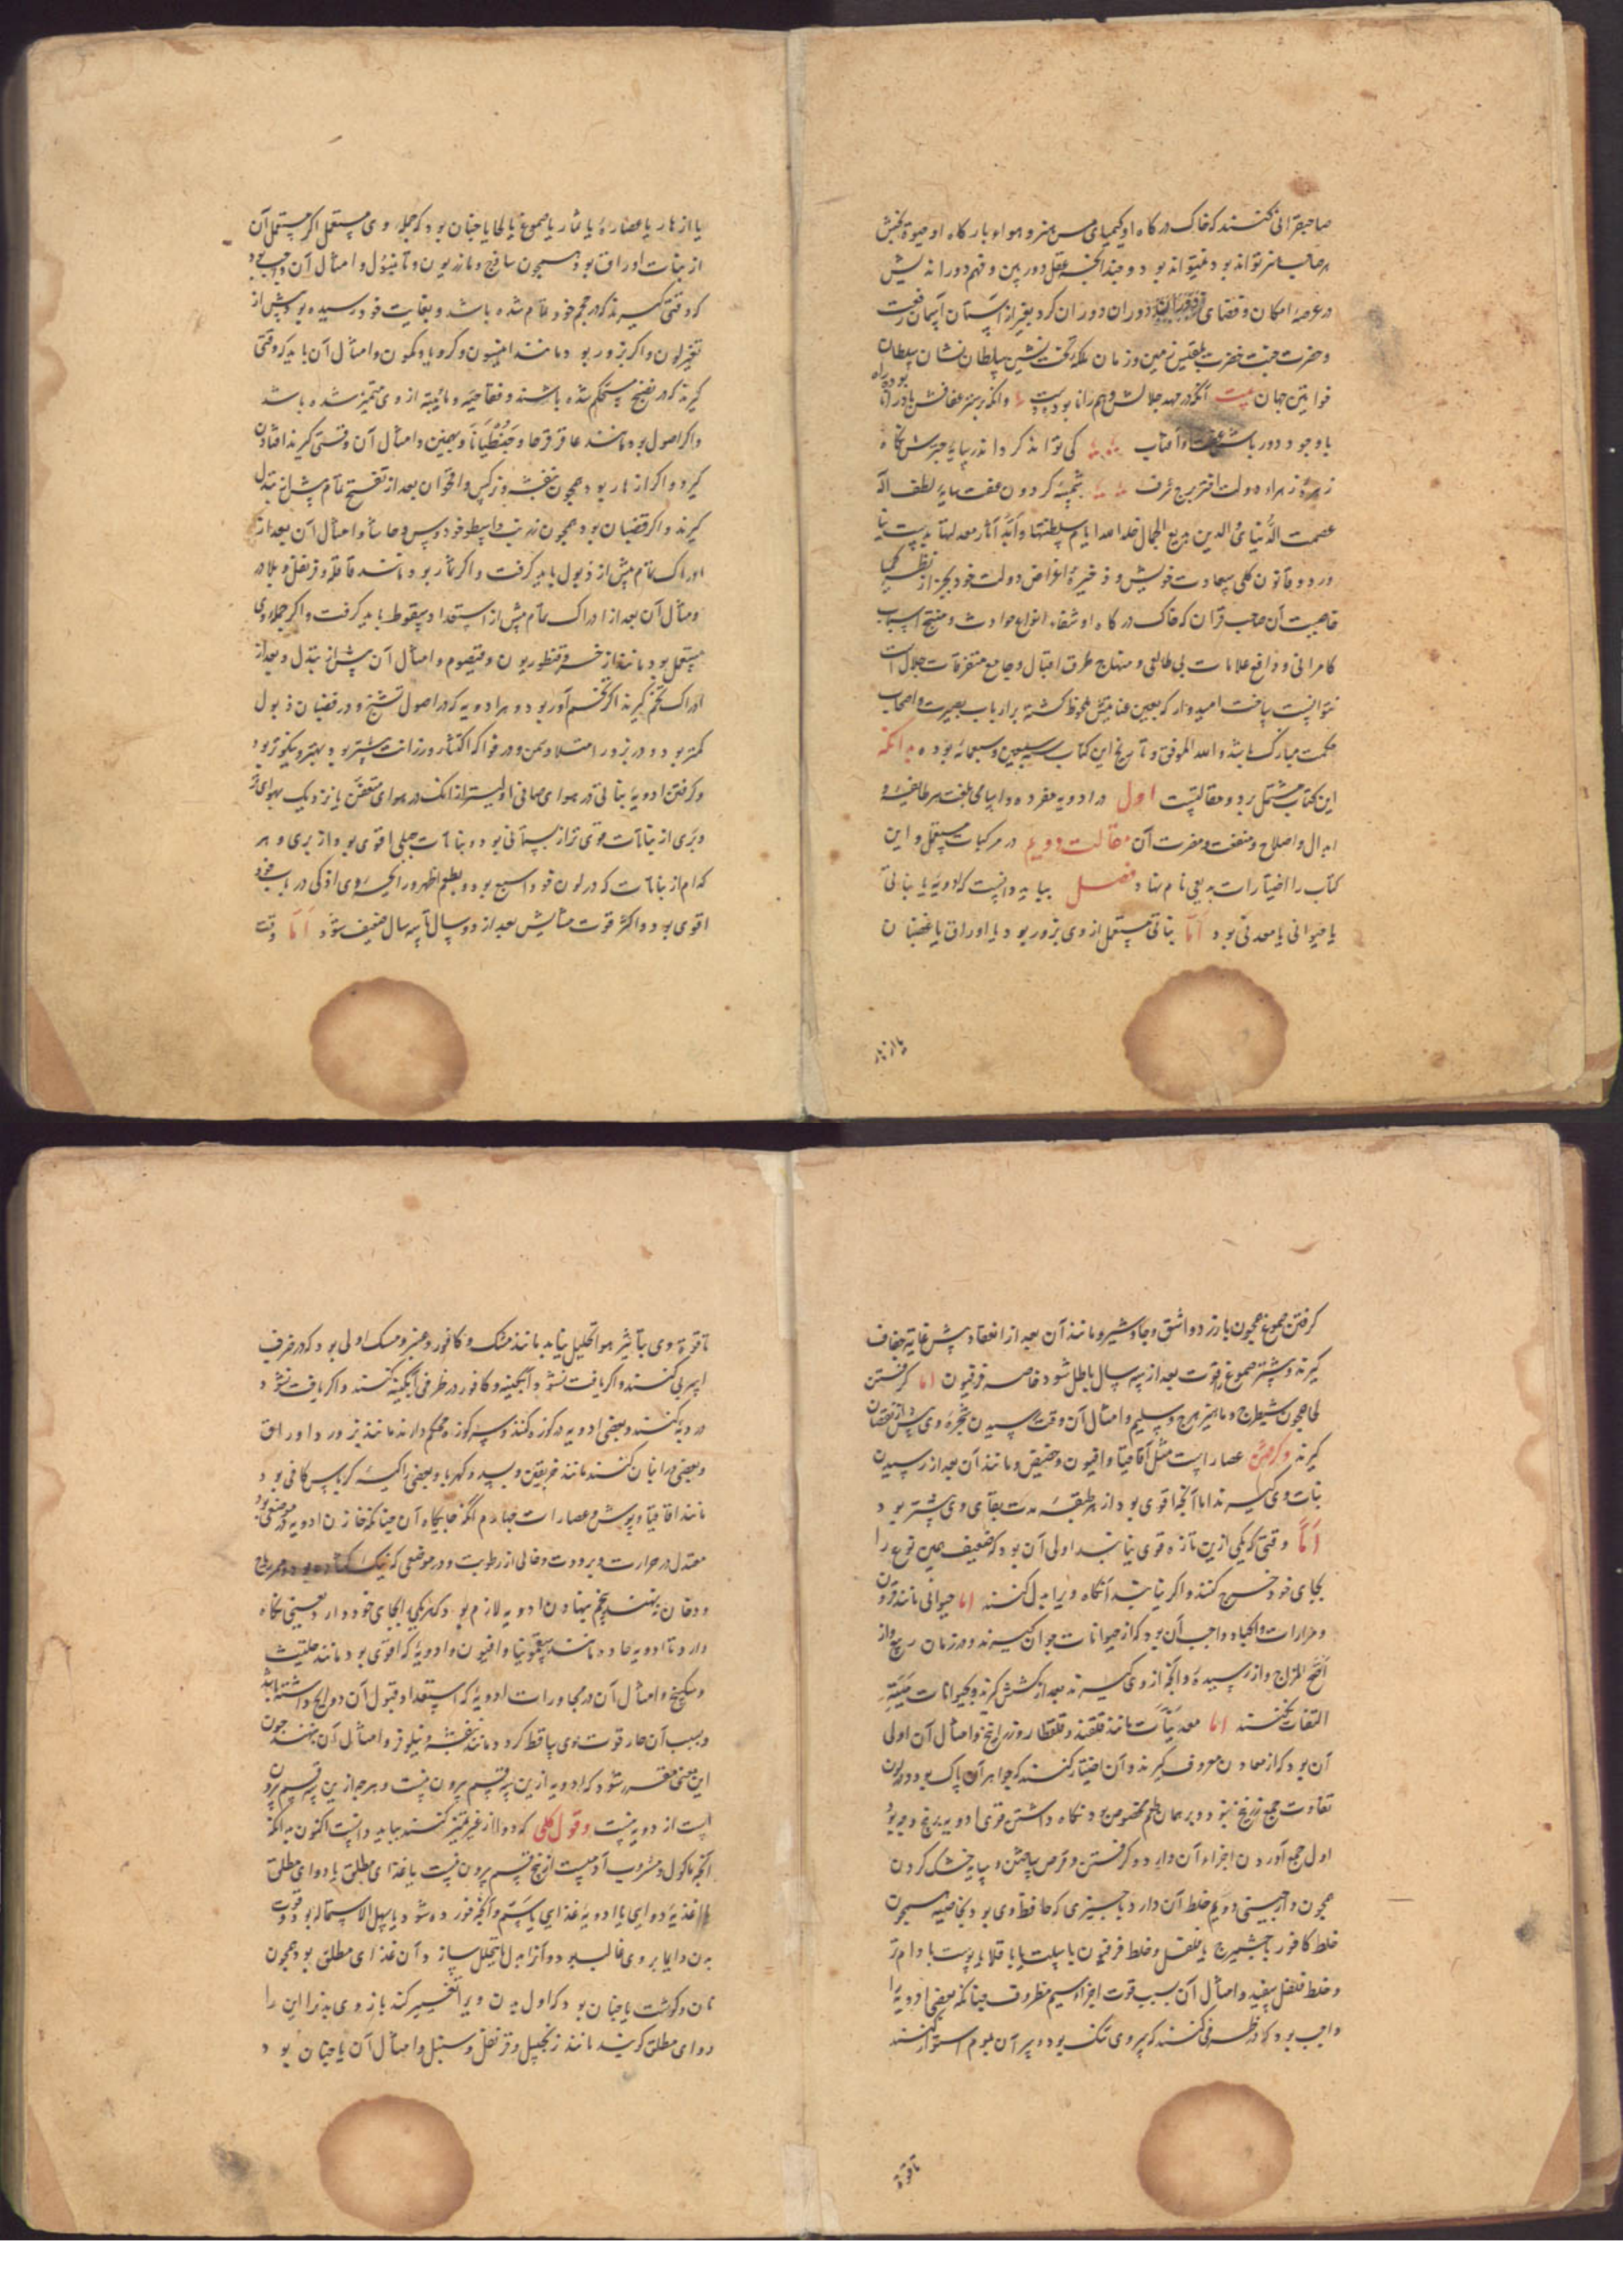 صاحبقرانی کنند که خاک درکاه او کیمیای مس هنر و هواء بارکاه او حیوة بخش
هر صاحب هنر تواند بود نمیتواند بود و چندانکه عقل دوربین و فهم دوراندیش
در عرصهٔ امکان و فضای دوران دوران کرد بغیر از آستان آسمان رفعت
و حضرت جنت حضرت بلقیس زمین و زمان ملکهٔ تخت نشین سلطان نشان سلطان
خواتین جهان بیت آنکه در مهد جلالش وهم را نابوده راه
باوجود دورباش عفت او آفتاب کی تواند کرد اندر سایهٔ چترش نکاه
زهرهٔ زهراء دولت اختر برج شرف شمسهٔ کردون عفت سایهٔ لطف اله
عصمت الدنیا و الدین بدیع الجمال خلد الله ایام سلطنتها و ابد آثار معدلتها
در دو قانون کلی سعادت خویش و ذخیرهٔ اغراض دولت خود بجز از نظر
خاصیت آن صاحب قران که خاک درکاه او شفاء انواع حوادث و منتج اسباب
کامرانی و دافع علامات بی طالعی و منهاج طرق اقبال و جامع متفرقات جلال است
نتوانست ساخت امیدوار که بعین عنایتش ملحوظ کشته بر ارباب بصیرت و اصحاب
حکمت مبارک باشد والله الموفق و تاریخ این کتاب سبعین و سبعمائه بوده بدانکه
این کتاب مشتمل بر دو مقالتست اول در ادویه مفرده و اسامی بلغت هر طایفه و
ابدال و اصلاح و منفعت و مضرت آن مقالت دویم در مرکبات مستعمل و این
کتاب را اختیارات بدیعی نام نهاد فصل بباید دانست که ادویه یا نباتی
یا حیوانی یا معدنی بود اما نباتی مستعمل از وی بزور بود یا اوراق یا غضبان
یا ازهار
یا ازهار یا عصاره یا ثمار یا صموغ یا لحا یا چنان بود که جمله وی مستعمل اکر مستعمل آن
از نبات اوراق بود همچون ساذج و مازریون و تانبول و امثال آن واجب بود
که وقتی کیرند که در حجم خود تمام شده باشد و بغایت خود رسیده بود پیش از
تغیر لون و اکر بزور بود مانند انیسون و کرویا و کمون و امثال آن باید که وقتی
کیرند که در نضج مستحکم شده باشند و فجاجیه و مائیته از وی متمیز شده باشد
و اکر اصول بود مانند عاقرقرحا و جنطیانا و بهمنین و امثال آن وقتی کیرند افتادن
کیرد و اکر ازهار بود همچون بنفشه و نرکس و اقحوان بعد از تفتح تمام پیش از تبدل
کیرند و اکر قضبان بود همچون زرنب و اسطوخودوس و حاشا و امثال آن بعد از
ادراک تمام پیش از ذبول باید کرفت و اکر ثمار بود مانند قاقله و قرنفل و بلادر
و مثال آن بعد از ادراک تمام پیش از استعداد سقوط باید کرفت و اکر جمله وی
مستعمل بود مانند اذخر و قنطوریون و قیصوم و امثال آن پیش از تبدل و بعد از
ادراک تخم کیرند اکر تخم آور بود و هر ادویه که در اصول تشنج و در قضبان ذبول
کمتر بود و در بزور امتلا و سمن و در فواکه اکتناز و رزانت بیشتر بود بهتر و نیکوتر بود
و کرفتن ادویهٔ نباتی در هوای صافی اولیتر از آنک در هوای متعفن یا نزدیک بهوای تر
و بری از نباتات قوی تر از بستانی بود و نباتات جبلی اقوی بود از بری و هر
کدام از نباتات که در لون خود اسبع بود و بطعم اظهر و رایحه وی اذکی در باب خود
اقوی بود و اکثر قوت حشایش بعد از دو سال یا سه سال ضعیف شود اما وقت
کرفتن صموغ همچون بارزد و اشق و جاوشیر و مانند آن بعد از انعقاد پیش از غایة جفاف
کیرند و بیشتر صموغ را قوت بعد از سه سال باطل شود خاصه فرفیون اما کرفتن
لحا همچون شیطرج و ماهیزهرج و سلیم و امثال آن وقت رسیدن شجرهٔ وی پیش از نقصان
کیرند و کرفتن عصاراست مثل اقاقیا و افیون و حضض و مانند آن بعد از رسیدن
نبات وی کیرند اما آنچه اقوی بود از هر طبقه مدت بقای وی بیشتر بود
اما وقتی که یکی ازین تازه قوی نیابند اولی آن بود که ضعیف همین نوع را
بجای خود خرج کنند و اکر نیابند آنکاه ویرا بدل کنند اما حیوانی مانند قرون
و مرارات و اکباد واجب آن بود که از حیوانات جوان کیرند و در زمان ربیع و از
اصح المزاج و از رسیده و آنچه از وی کیرند بعد از کشتن کیرند و بحیوانات میته
التفات نکنند اما معدنیات مانند قلقند و قلقطار و زرنیخ و امثال آن اولی
آن بود که از معادن معروف کیرند و آن اختیار کنند که جواهر آن پاک بود و در لون
تفاوت جمع زرنیخ نبود و بر همان طعم مخصوص بود نکاه داشتن قوی ادویه برنج وجه بود
اول جمع آوردن اجزاء آن دارد و کرفتن و قرص ساختن و بسایه خشک کردن
همچون دارچینی دویم خلط آن دارد با چیزی که حافظ وی بود بخاصیه همچون
خلط کافور با شمیرج یا فلفل و خلط فرفیون با سلت یا باقلا با پوست بادام تر
و خلط فلفل سفید و امثال آن سبب قوت اجزا سیم مظروف چنانکه بعضی ادویه را
واجب بود که در ظرفی کنند که سر وی تنک بود و سر آن بموم استوار کنند
تا قوة
تا قوة وی بتاثیر هوا تحلیل نیابد مانند مشک و کافور و عنبر و مسک اولی بود که در ظرف
اسربی کنند و اکر یافت نشود آبکینه و کافور در ظرفی آبکینه کنند و اکر یافت نشود
در دیه کنند و بعضی ادویه در کوزه کنند و سر کوزه محکم دارند مانند بزور و اوراق
و بعضی در انبان کنند مانند خربقین و بسد و کهربا و بعضی را کیسه کرباس کافی بود
مانند اقاقیا و بوش و عصارات چهارم آنکه جایکاه آن چنانکه خازن ادویه در موضعی بود
معتدل در حرارت و برودت و خالی از رطوبت و در موضعی که
و دخان ننهند پنجم نهادن ادویه لازم بود که هر یکی را بجای خود دارد یعنی نکاه
دارد تا ادویه حاده مانند سقمونیا و افیون و ادویه که اقوی بود مانند حلتیت
و سکبینج و امثال آن در مجاورات ادویه که استعداد قبول آن روایح داشته باشد
و بسبب آن حار قوت وی ساقط کردد مانند بنفشه و نیلوفر و امثال آن ننهند چون
این معنی مقرر شود که ادویه ازین سه قسم بیرون نیست و هرچه ازین سه قسم بیرون
است از دویه نیست و قول کلی که دوا را از غیر متمیز کنند بباید دانست اکنون بدانکه
آنچه ماکول و مشروب آدمیست از پنج قسم بیرون نیست یا غذای مطلق یا دوای مطلق
یا اغذیه دوایی یا ادویهٔ غذایی یا سم و آنچه خورده شود یا سهل الاستحاله بود و قوت
بدن دایما بر وی غالب بود و آنرا بدل ما یتحلل سازد آن غذای مطلق بود همچون
نان و کوشت یا چنان بود که اول بدن ویرا تغییر کند باز وی بدنرا این را
دوای مطلق کویند مانند زنجبیل و قرنفل و سنبل و امثال آن یا چنان بود